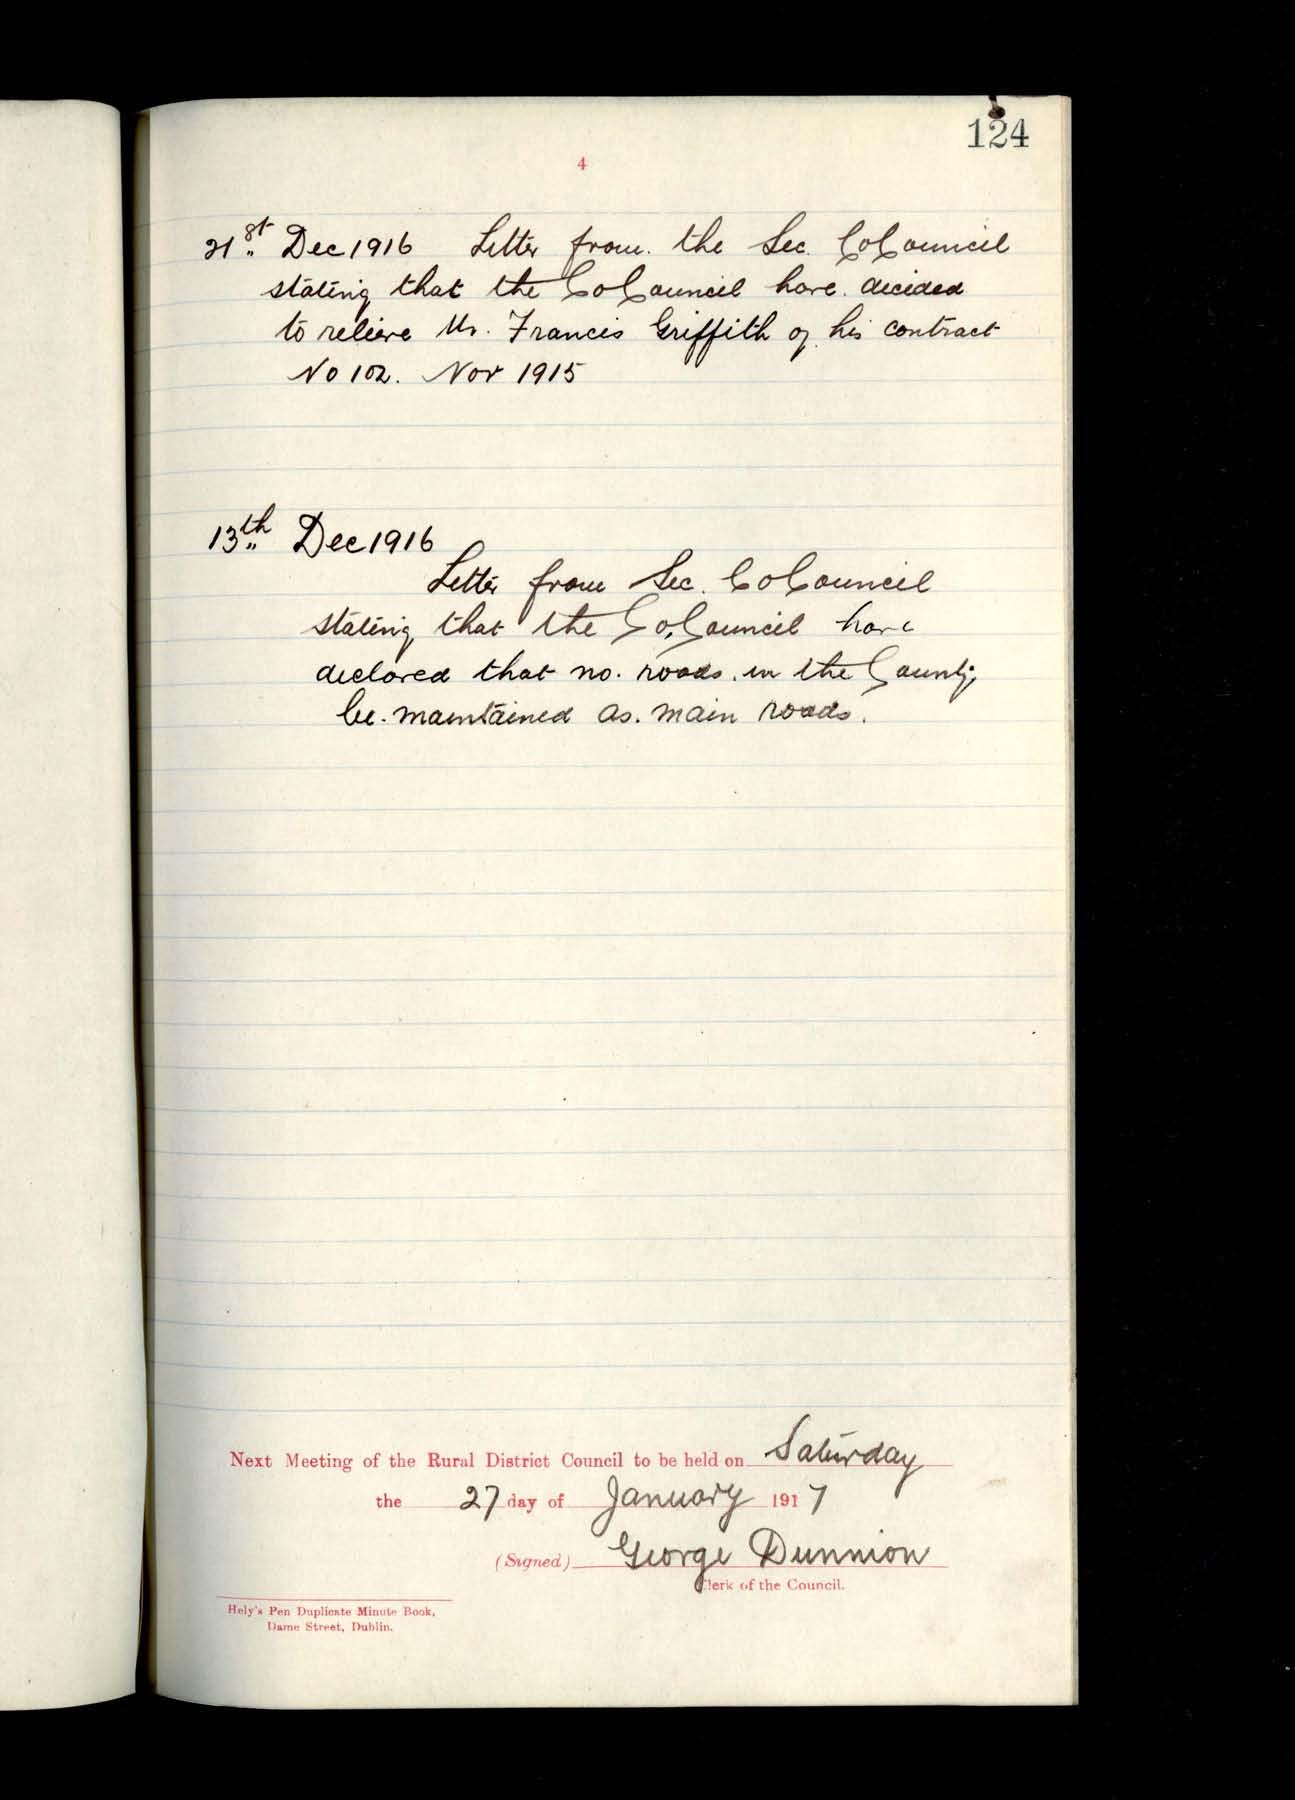 124
4
21st Dec 1916 Letter from. the Sec. Co Council
stating that the Co Council have. decided
to relieve Mr. Francis Griffith of his contract
No 102. Nov 1915
13th Dec 1916
Letter from Sec. Co Council
stating that the Co. Council have
declared that no. roads. in the County
be. maintained as. main roads.
Next Meeting of the Rural District Council to be held on Saturday
the 27 day of January 1917
(Signed) George Dunnion
Clerk of the Council.
Hely's Pen Duplicate Minute Book,
Dame Street, Dublin.